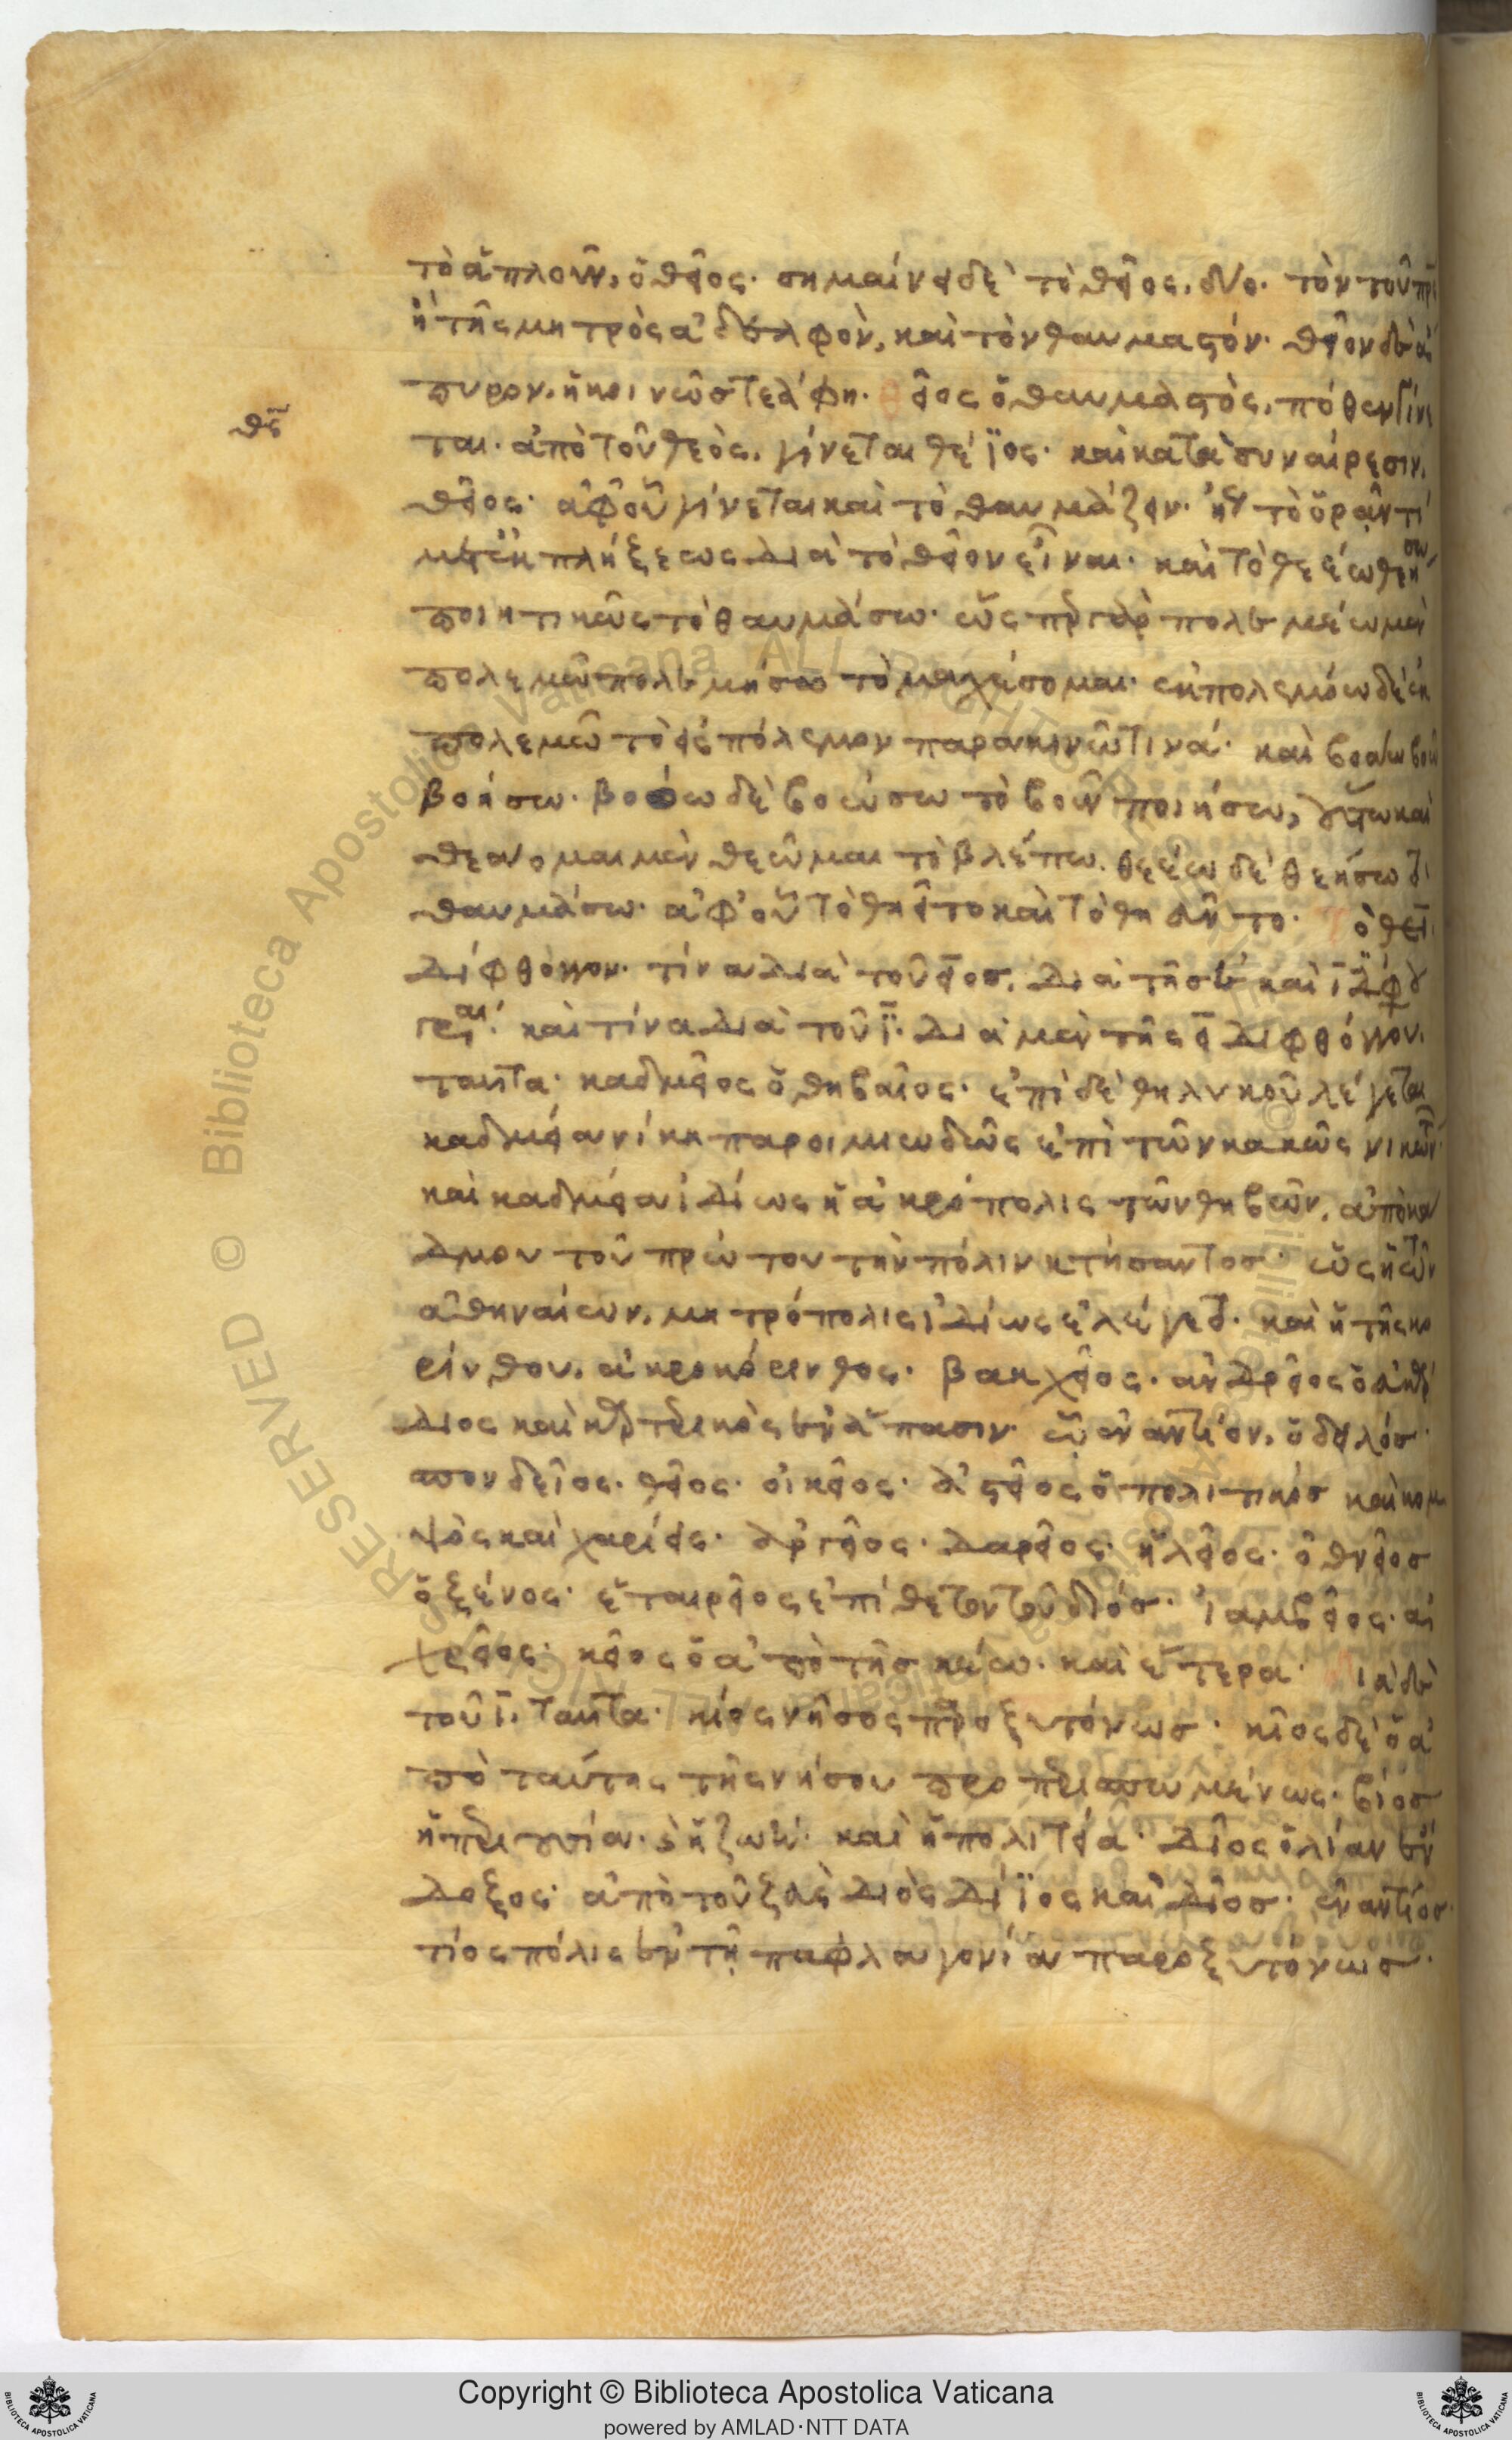 τὸ ἁπλοῦν, ὁ θεῖος· σημαίνει δὲ τὸ θεῖος, δύο· τὸν τοῦ πρς
ἢ τῆς μητρὸς ἀδελφὸν, καὶ τὸν θαυμαστόν· θεῖον δὲ ἄ
πυρον, ἡ κοινῶς τεάφη· θεῖος ὁ θαυμαστὸς, πόθεν γίνε
θς
ται· ἀπὸ τοῦ θεὸς, γίνεται θέϊος· καὶ κατὰ συναίρεσιν,
θεῖος· ἀφ' οὗ γίνεται καὶ τὸ θαυμάζειν· ἤγουν τὸ ὁρᾶν τί
μετ' ἐκπλήξεως διὰ τὸ θεῖον εἶναι· καὶ τὸ θεέω θεήσω
ποιητικῶς τὸ θαυμάσω· ὡς περ γὰρ πολεμέω μὲν
πολεμῶ πολεμήσω τὸ μαχέσομαι· ἐκπολεμόω δὲ ἐκ
πολεμῶ τὸ εἰς πόλεμον παρακινῶ τινά· καὶ βοάω βοῶ
βοήσω· βοόω δὲ βοώσω τὸ βοῦν ποιήσω, οὕτω καὶ
θεάομαι μὲν θεῶμαι τὸ βλέπω. θεέω δὲ θεήσω τὸ
θαυμάσω· ἀφ' οὗ τὸ θηεῖτο καὶ τὸ θηεῦντο· ὸ θει
δίφθογγον· τίνα διὰ τοῦ ειος, διὰ τῆς ε καὶ ι διφθόγ
γραι· καὶ τίνα διὰ τοῦ ϊ· διὰ μὲν τῆς ει διφθόγγου,
ταῦτα· καδμεῖος ὁ θηβαῖος· ἐπὶ δὲ θηλυκοῦ λέγεται
καδμεία νίκη παροιμιωδῶς ἐπὶ τῶν κακῶς νικώντων
καὶ καδμεία ἰδίως ἡ ἀκρόπολις τῶν θηβῶν, ἀπὸ κά
δμου τοῦ πρώτου τὴν πόλιν κτήσαντος· ὡς ἡ τῶν
ἀθηναίων, μητρόπολις ἰδίως ἐλέγετο· καὶ ἡ τῆς κο
ρίνθου, ἀκροκόρινθος· βακχεῖος· ἀνδρεῖος ὁ
διος καὶ καρτερικὸς ἐν ἅπασιν· ᾧ ἐναντίον, ὁ δειλός·
σπονδεῖος· θεῖος· οἰκεῖος· ἀστεῖος ὁ πολιτικός καὶ κομ
ψὸς καὶ χαρίεις· ἀργεῖος· δαρεῖος· ἠλεῖος· ὀθνεῖος
ὁ ξένος· ἑταιρεῖος ἐπίθετον τοῦ διός· ἰαμβεῖος· ἀ
χρεῖος· κεῖος ὁ ἀπὸ τῆς κέω· καὶ ἕτερα· ιὰ δὲ
τοῦ ϊ, ταῦτα· κίος νῆσος παροξυτόνως· κῖος δὲ ὁ ἀ
πὸ ταύτης τῆς νήσου προπερισπωμένως· βίος
ἡ περιουσία· καὶ ἡ ζωὴ· καὶ ἡ πολιτεία· δῖος ὁ λίαν ἔν
δοξος· ἀπὸ τοῦ ζεὺς διὸς δίϊος καὶ δῖος· ἐναντίος·
τίος πόλις ἐν τῇ παφλαγονία παροξυτόνως·